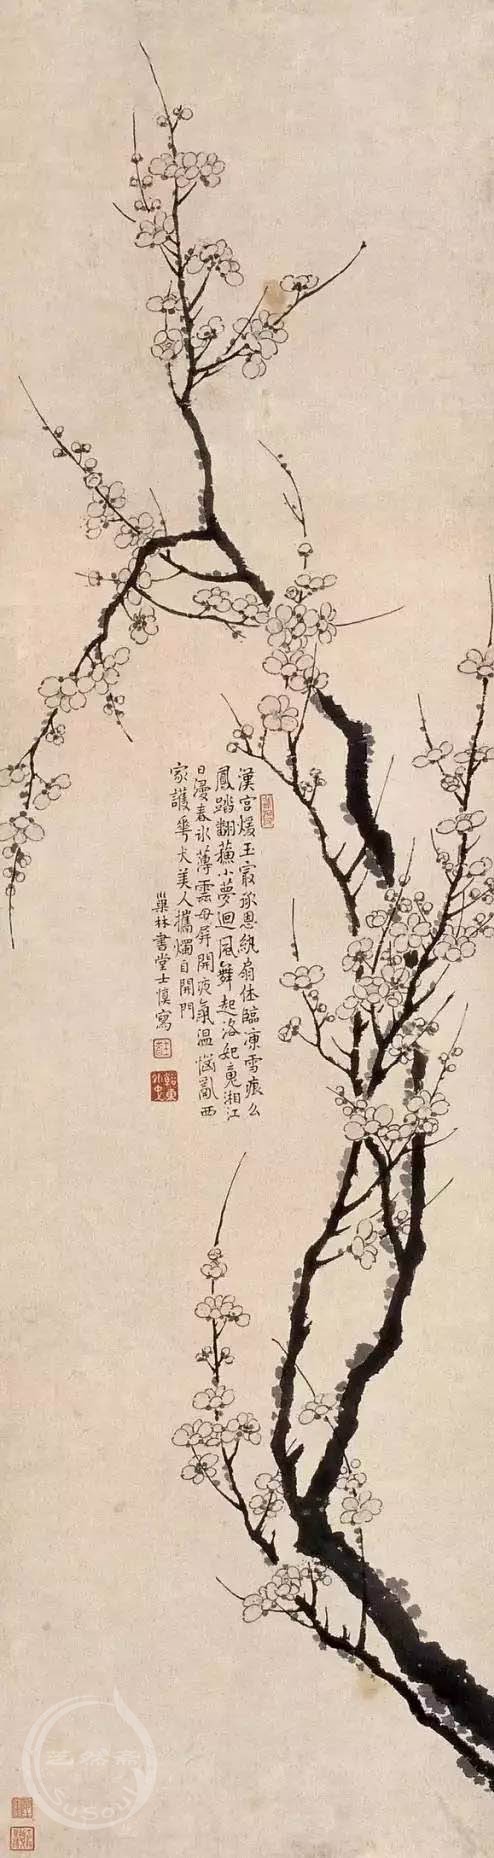 漢宮煖玉㝡承恩紈扇休臨凍雪痕么
鳳踏翻蘓小夢迴風舞起洛妃䰟湘江
日漫春冰薄雲母屏開夜氣温惱亂西
家護華犬美人攜燭自開門
巢林書堂士慎寫
谿東外史
SuSoul